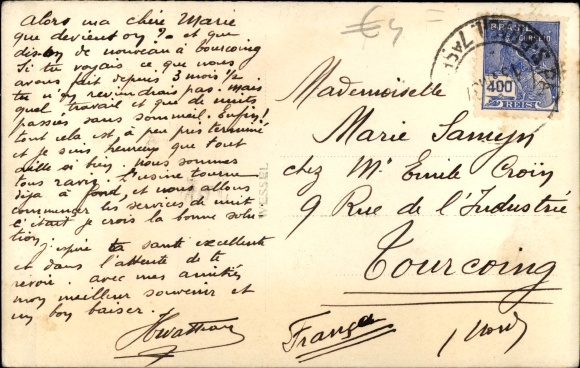 Alors ma chère Marie
que devient on ? et que
dis on de nouveau à bourcoing
Si tu voyais ce que nous
avons fait depuis 3 mois ½
tu n'y reviendrais pas. mais
quel travail et que de nuits
passées sans sommeil. Enfin!
tout cela est à peu près terminé
et je suis heureux que tout
aille si bien. nous sommes
tous ravis. l'usine tourne
déjà à fond, et nous allons
commencer les services de nuit
c'était je crois la bonne solu
tion.
j'espère ta santé excellente
et dans l'attente de te
revoir. avec mes amitiés
mon meilleur souvenir et
un bon baiser.
€4
BRASIL
CORREIO
400
REIS
WESSEL
Mademoiselle
Marie Samyn
chez Mr Emile Croïn
9 Rue de l'Industrie
Tourcoing
França
(Nord)